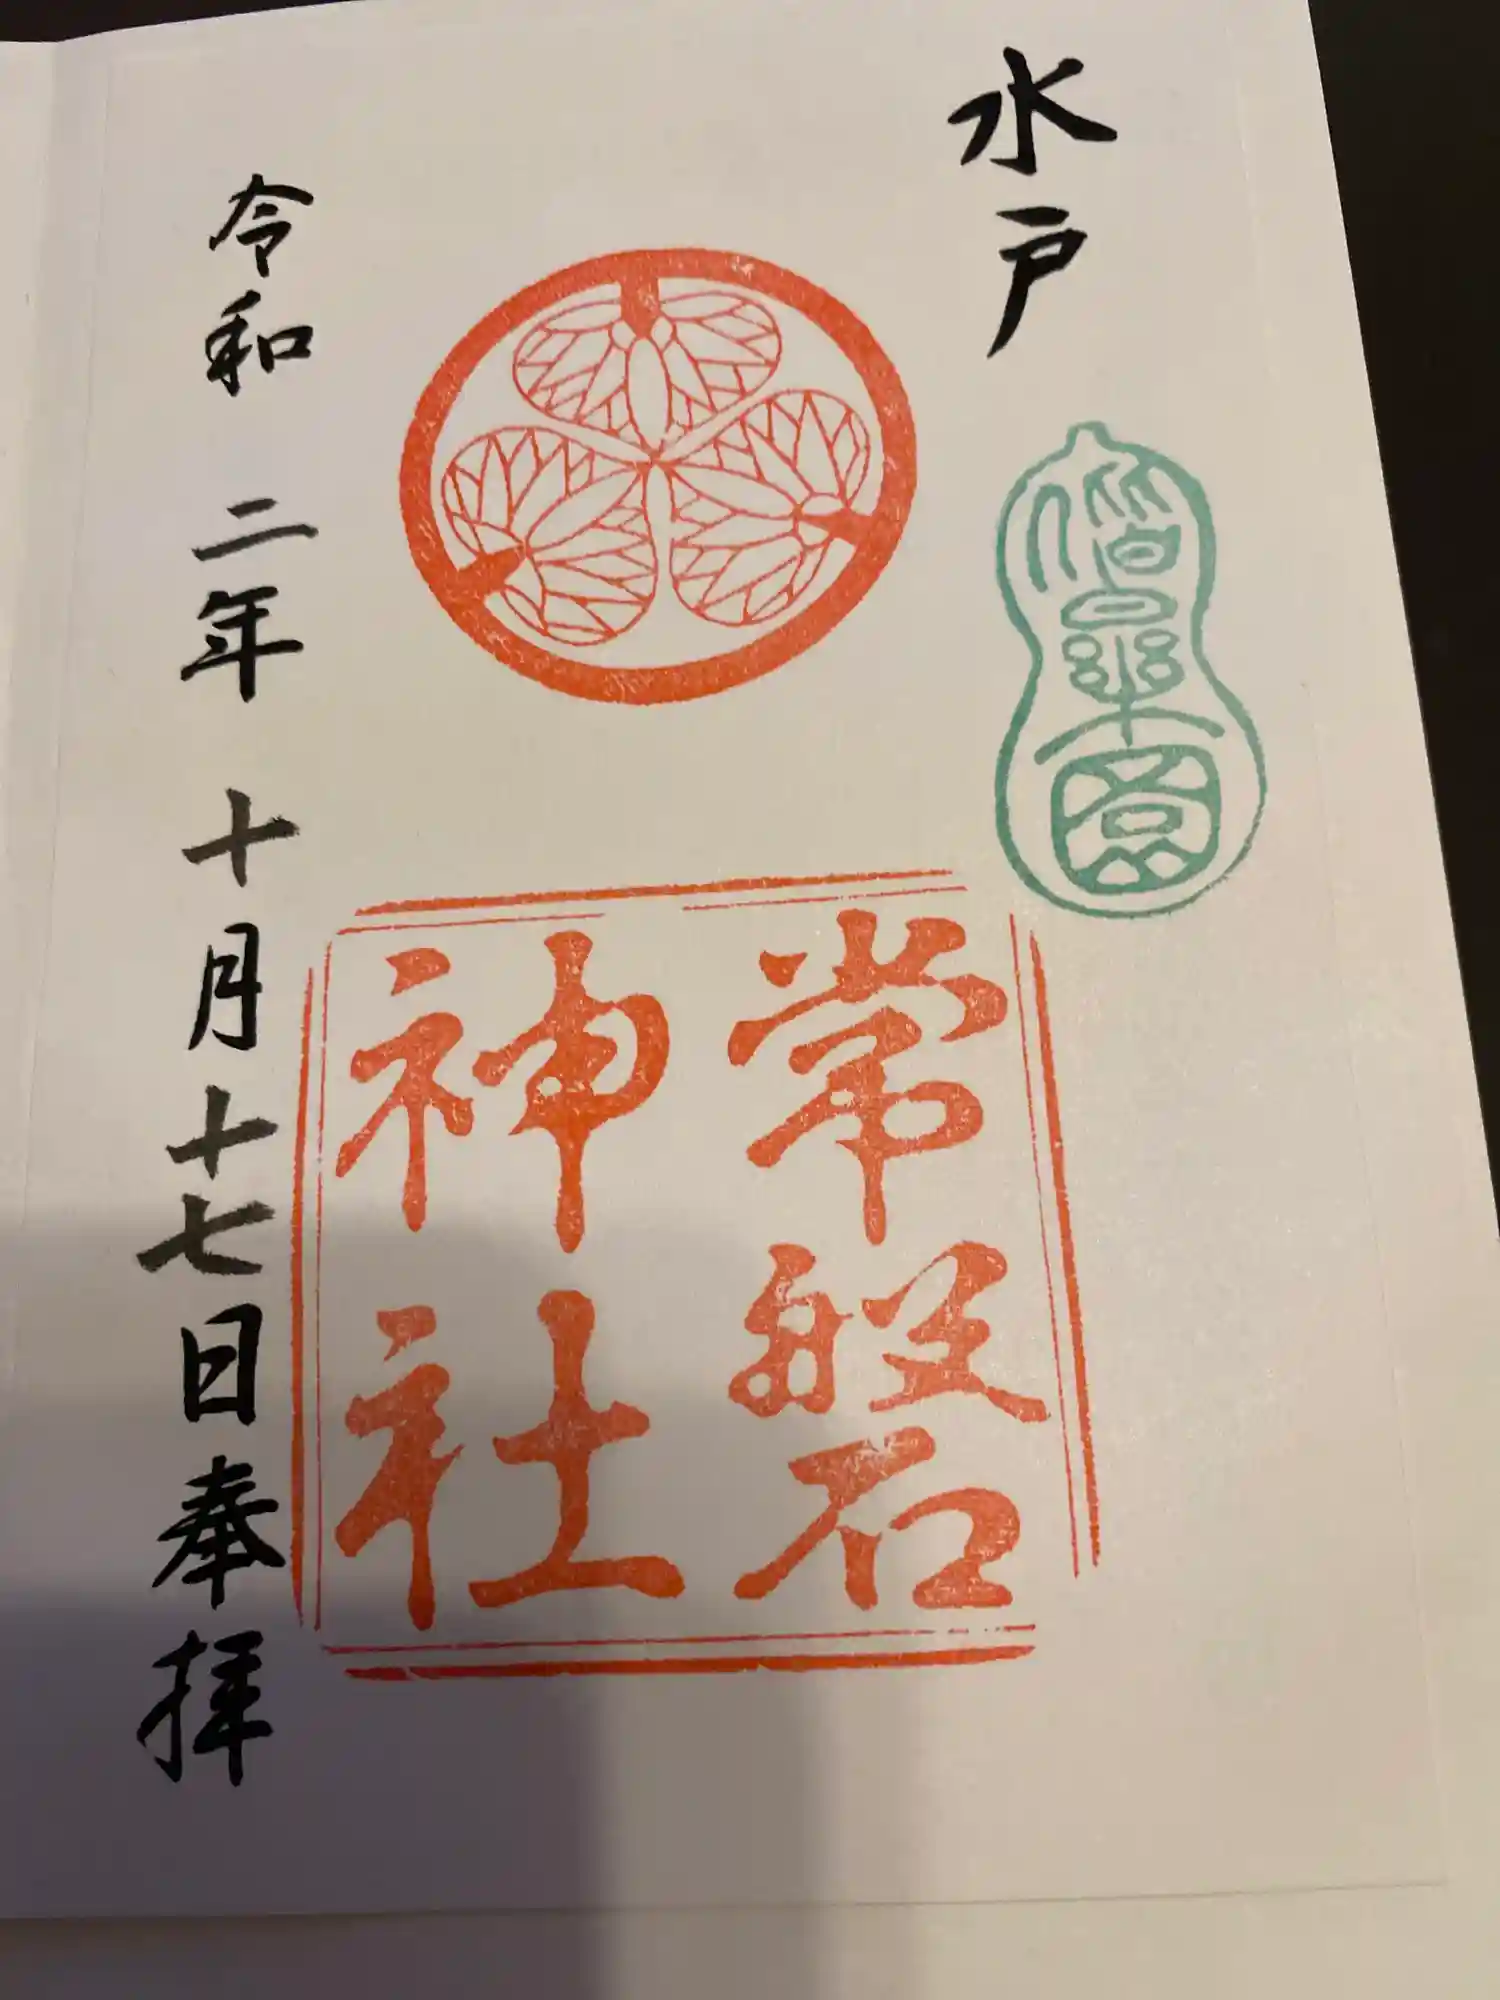 水戸
偕楽園
常磐
神社
令和二年十月十七日奉拝